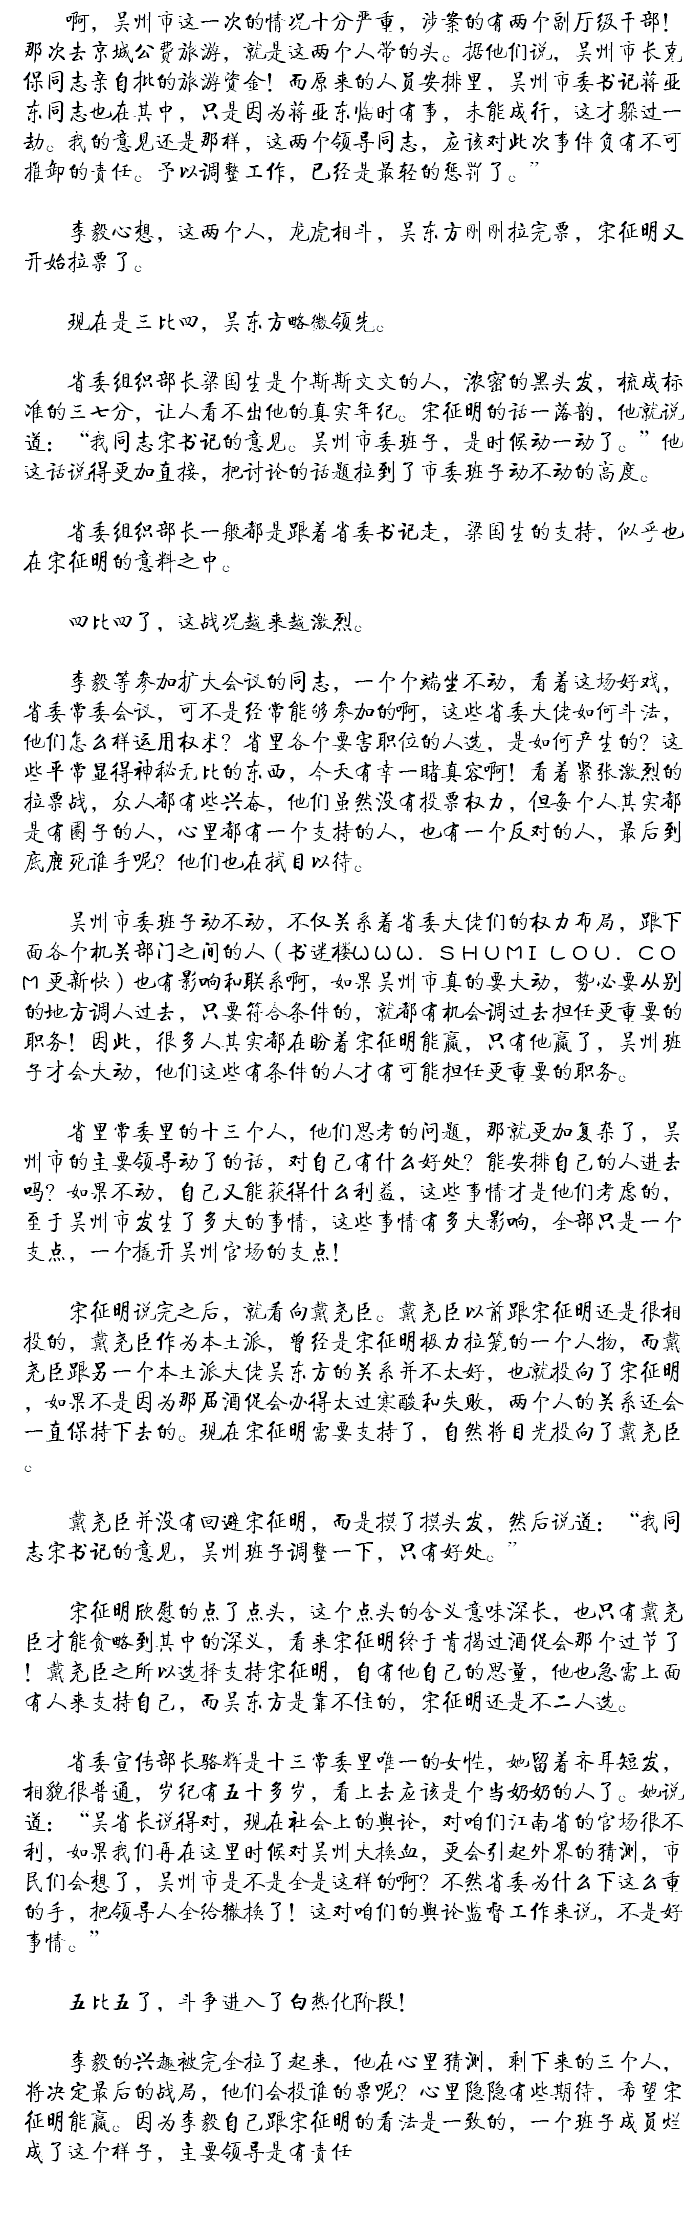 啊，吴州市这一次的情况十分严重，涉案的有两个副厅级干部！
那次去京城公费旅游，就是这两个人带的头。据他们说，吴州市长克
保同志亲自批的旅游资金！而原来的人员安排里，吴州市委书记蒋亚
东同志也在其中，只是因为蒋亚东临时有事，未能成行，这才躲过一
劫。我的意见还是那样，这两个领导同志，应该对此次事件负有不可
推卸的责任。予以调整工作，已经是最轻的惩罚了。”
李毅心想，这两个人，龙虎相斗，吴东方刚刚拉完票，宋征明又
开始拉票了。
现在是三比四，吴东方略微领先。
省委组织部长梁国生是个斯斯文文的人，浓密的黑头发，梳成标
准的三七分，让人看不出他的真实年纪。宋征明的话一落韵，他就说
道：“我同志宋书记的意见。吴州市委班子，是时候动一动了。”他
这话说得更加直接，把讨论的话题拉到了市委班子动不动的高度。
省委组织部长一般都是跟着省委书记走，梁国生的支持，似乎也
在宋征明的意料之中。
四比四了，这战况越来越激烈。
李毅等参加扩大会议的同志，一个个端坐不动，看着这场好戏，
省委常委会议，可不是经常能够参加的啊，这些省委大佬如何斗法，
他们怎么样运用权术？省里各个要害职位的人选，是如何产生的？这
些平常显得神秘无比的东西，今天有幸一睹真容啊！看着紧张激烈的
拉票战，众人都有些兴奋，他们虽然没有投票权力，但每个人其实都
是有圈子的人，心里都有一个支持的人，也有一个反对的人，最后到
底鹿死谁手呢？他们也在拭目以待。
吴州市委班子动不动，不仅关系着省委大佬们的权力布局，跟下
面各个机关部门之间的人（书迷楼ＷＷＷ．ＳＨＵＭＩＬＯＵ．ＣＯ
Ｍ更新快）也有影响和联系啊，如果吴州市真的要大动，势必要从别
的地方调人过去，只要符合条件的，就都有机会调过去担任更重要的
职务！因此，很多人其实都在盼着宋征明能赢，只有他赢了，吴州班
子才会大动，他们这些有条件的人才有可能担任更重要的职务。
省里常委里的十三个人，他们思考的问题，那就更加复杂了，吴
州市的主要领导动了的话，对自己有什么好处？能安排自己的人进去
吗？如果不动，自己又能获得什么利益，这些事情才是他们考虑的，
至于吴州市发生了多大的事情，这些事情有多大影响，全部只是一个
支点，一个撬开吴州官场的支点！
宋征明说完之后，就看向戴尧臣。戴尧臣以前跟宋征明还是很相
投的，戴尧臣作为本土派，曾经是宋征明极力拉笼的一个人物，而戴
尧臣跟另一个本土派大佬吴东方的关系并不太好，也就投向了宋征明
，如果不是因为那届酒促会办得太过寒酸和失败，两个人的关系还会
一直保持下去的。现在宋征明需要支持了，自然将目光投向了戴尧臣
。
戴尧臣并没有回避宋征明，而是摸了摸头发，然后说道：“我同
志宋书记的意见，吴州班子调整一下，只有好处。”
宋征明欣慰的点了点头，这个点头的含义意味深长，也只有戴尧
臣才能食略到其中的深义，看来宋征明终于肯揭过酒促会那个过节了
！戴尧臣之所以选择支持宋征明，自有他自己的思量，他也急需上面
有人来支持自己，而吴东方是靠不住的，宋征明还是不二人选。
省委宣传部长骆辉是十三常委里唯一的女性，她留着齐耳短发，
相貌很普通，岁纪有五十多岁，看上去应该是个当奶奶的人了。她说
道：“吴省长说得对，现在社会上的舆论，对咱们江南省的官场很不
利，如果我们再在这里时候对吴州大换血，更会引起外界的猜测，市
民们会想了，吴州市是不是全是这样的啊？不然省委为什么下这么重
的手，把领导人全给撤换了！这对咱们的舆论监督工作来说，不是好
事情。”
五比五了，斗争进入了白热化阶段！
李毅的兴趣被完全拉了起来，他在心里猜测，剩下来的三个人，
将决定最后的战局，他们会投谁的票呢？心里隐隐有些期待，希望宋
征明能赢。因为李毅自己跟宋征明的看法是一致的，一个班子成员烂
成了这个样子，主要领导是有责任